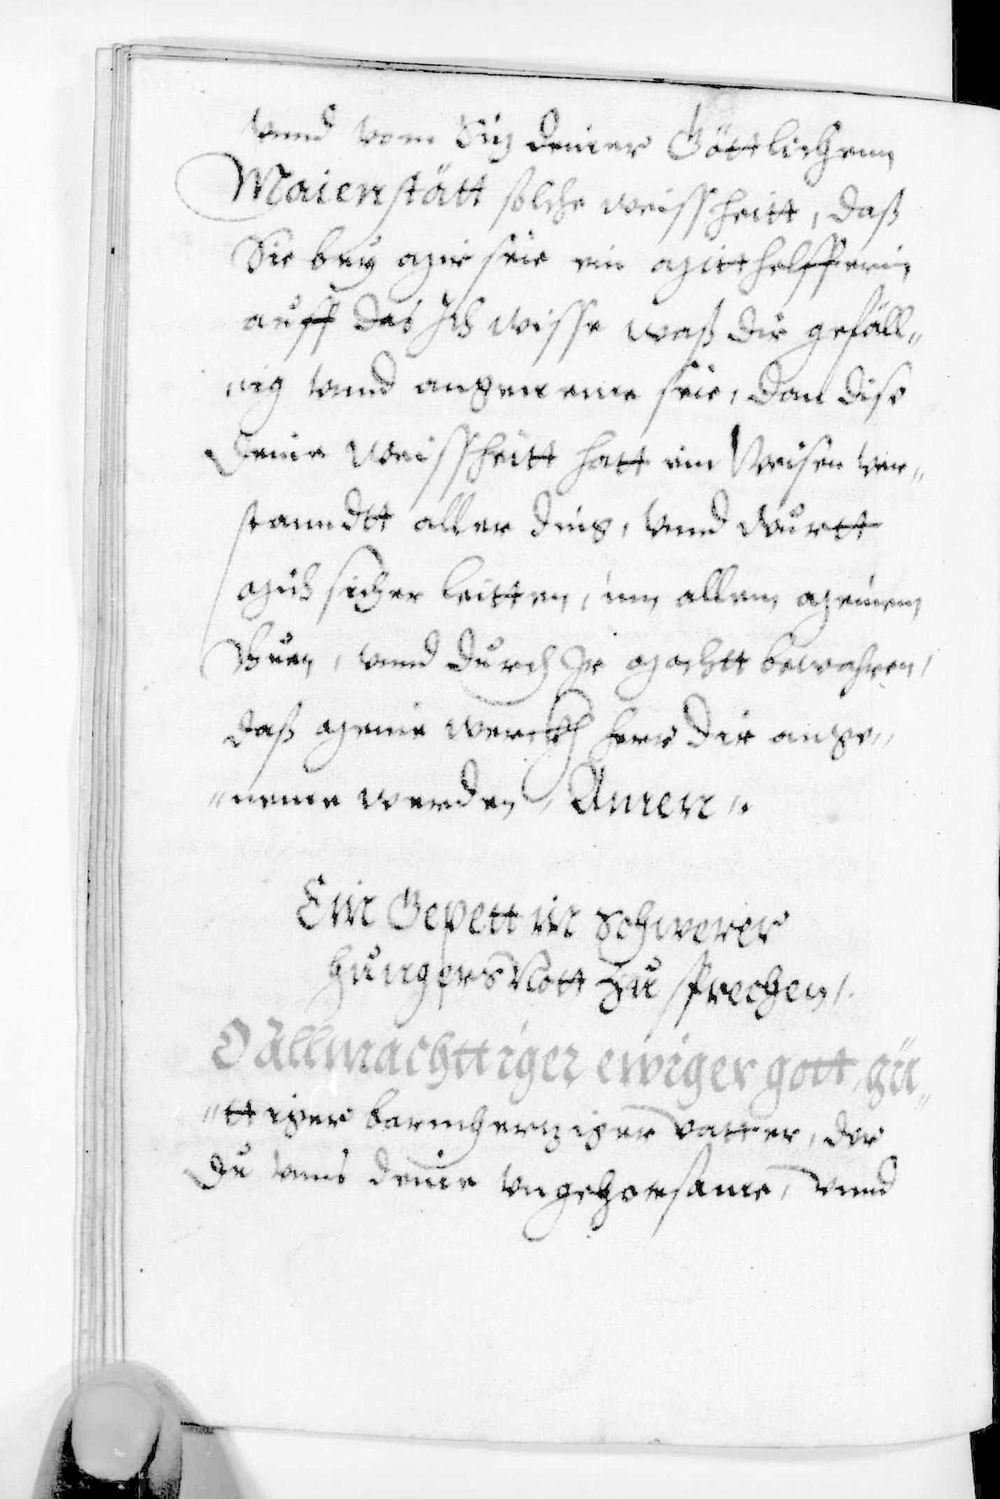 vnnd vom Sitz deiner Göttlichenn
Maienstätt solche weissheitt, daß
Sie bey mir seie ein mitthelfferin
auff das Ich wisse waß dir gefäll„
„ig vnnd angeneme seie, dan dise
Deine Weissheitt hatt ein Weisen ver„
standtt aller ding, vnnd wurtt
mich sicher leitten, inn allem meinem
thuen, vnnd durch Ire machtt bewahren,
daß meine werckh herr dir ange„
„neme werden, Amen.
Ein Gepett in schwerer
hungers Nott zu sprechen.
O Allmachttiger ewiger gott, gü„
„ttiger barmhertziger vatter, der
Du vnns deine vngehorsame, vnnd